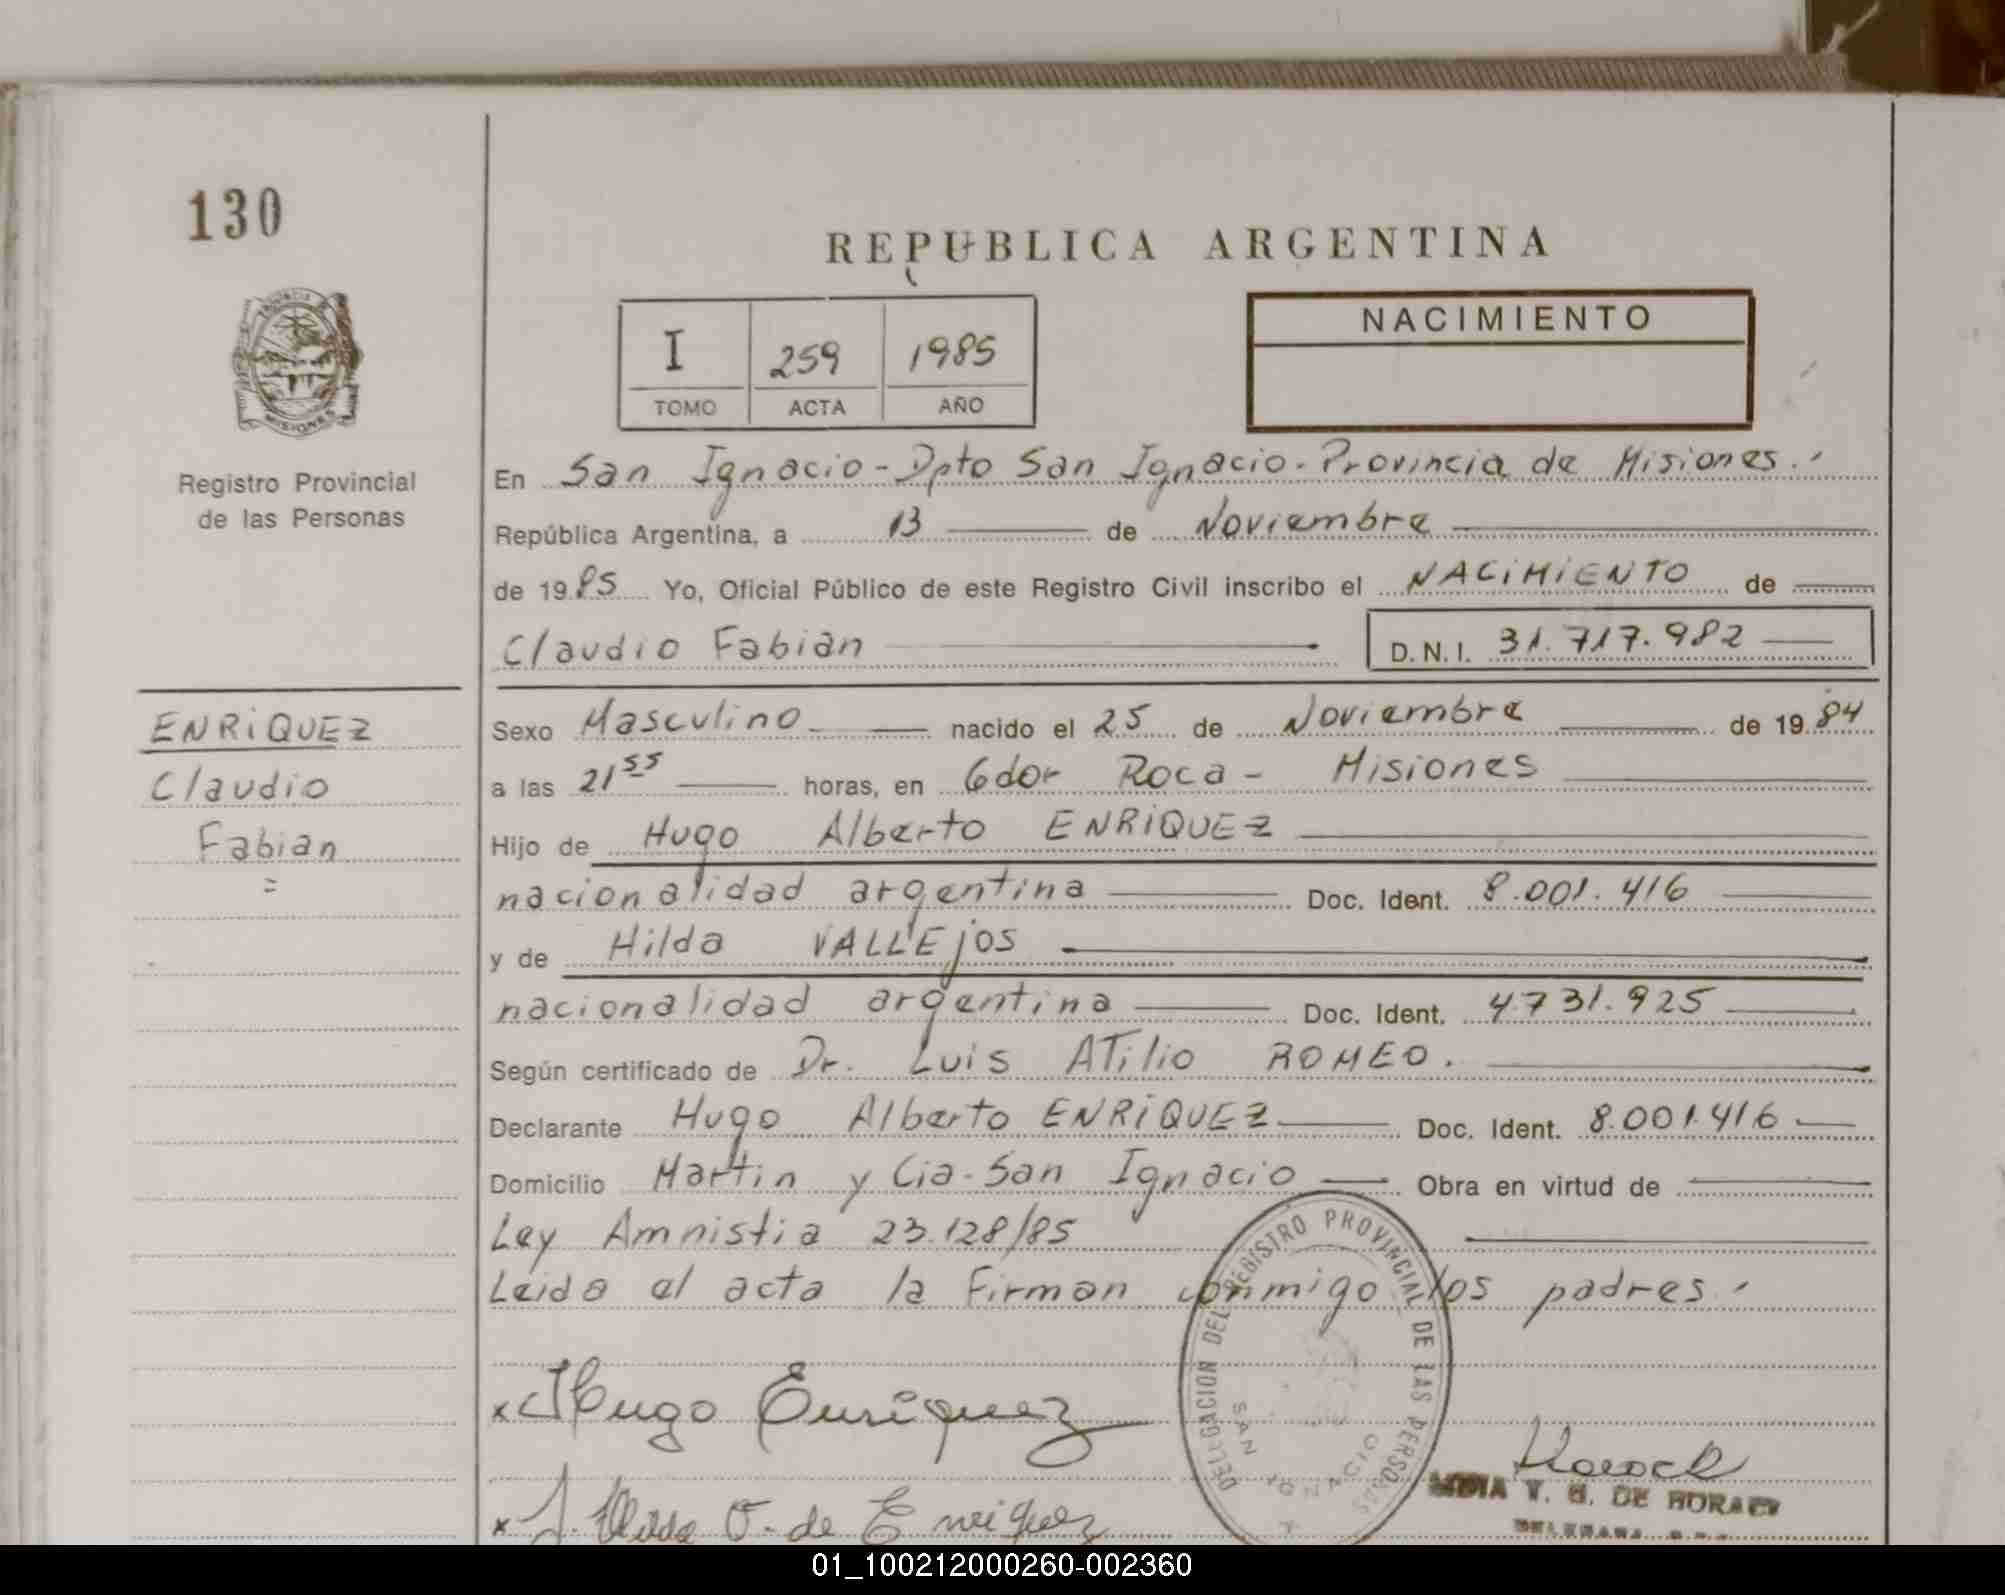 130
REPUBLICA ARGENTINA
I 259 1985
TOMO ACTA AÑO
NACIMIENTO
MISIONES
Registro Provincial
de las Personas
En San Ignacio - Dpto San Ignacio - Provincia de Misiones.
República Argentina, a 13 de Noviembre
de 19 85 Yo, Oficial Público de este Registro Civil inscribo el NACIMIENTO de
Claudio Fabian D.N.I. 31.717.982
ENRIQUEZ
Claudio
Fabian
=
Sexo Masculino nacido el 25 de Noviembre de 19 84
a las 21 55 horas, en Gdor Roca - Misiones
Hijo de Hugo Alberto ENRIQUEZ
nacionalidad argentina Doc. Ident. 8.001.416
y de Hilda VALLEjOS
nacionalidad argentina Doc. Ident. 4.731.925
Según certificado de Dr. Luis ATilio ROMEO.
Declarante Hugo Alberto ENRIQUEZ Doc. Ident. 8.001.416
Domicilio Martin y Cia - San Ignacio Obra en virtud de
Ley Amnistia 23.128/85
Leida el acta la Firman conmigo los padres.
DELEGACION DEL REGISTRO PROVINCIAL DE LAS PERSONAS
SAN IGNACIO
x Hugo Enriquez
x de Enriquez
Y. G. DE HORACK
01_100212000260-002360